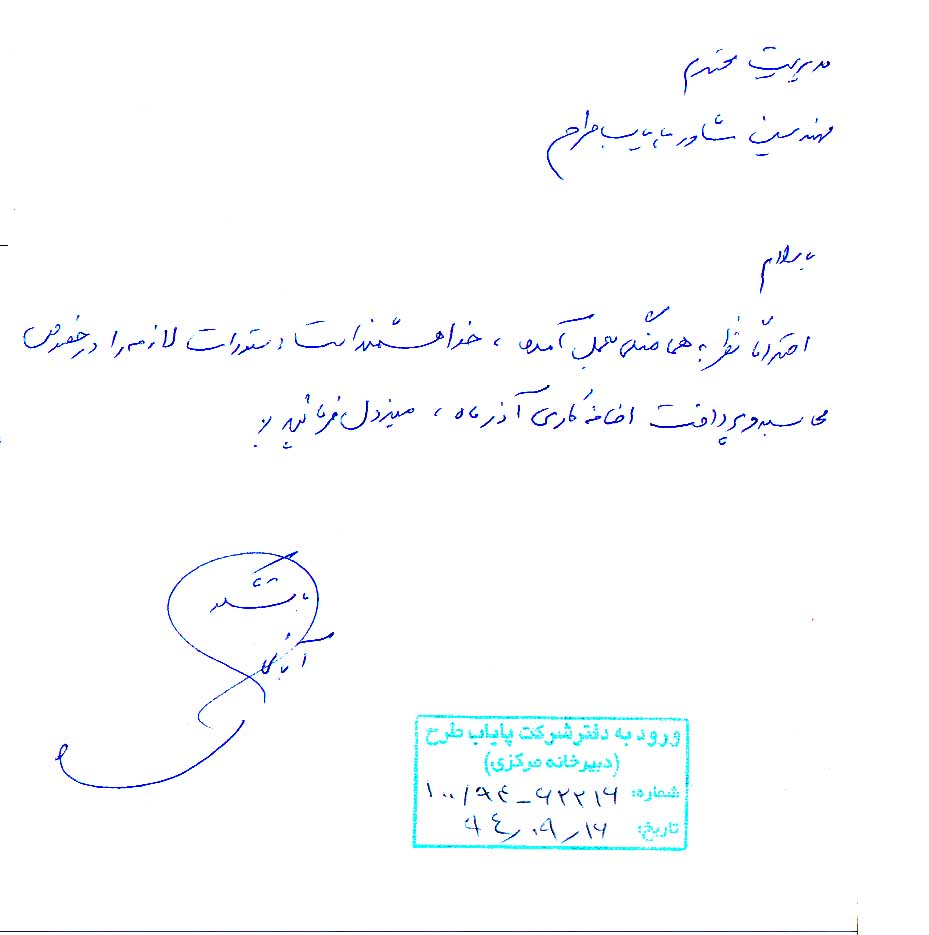 مدیریت محترم
مهندسین مشاور پایاب طرح
با سلام
احتراماً نظر به هماهنگی بعمل آمده ، خواهشمند است دستورات لازم را در خصوص
محاسبه و پرداخت اضافه کاری آذر ماه ، مبذول فرمائید
با تشکر
ورود به دفتر شرکت پایاب طرح
(دبیرخانه مرکزی)
شماره: ۱۰۰/۹۴-۶۲۲۱۶
تاریخ: ۹۴/۰۹/۱۶